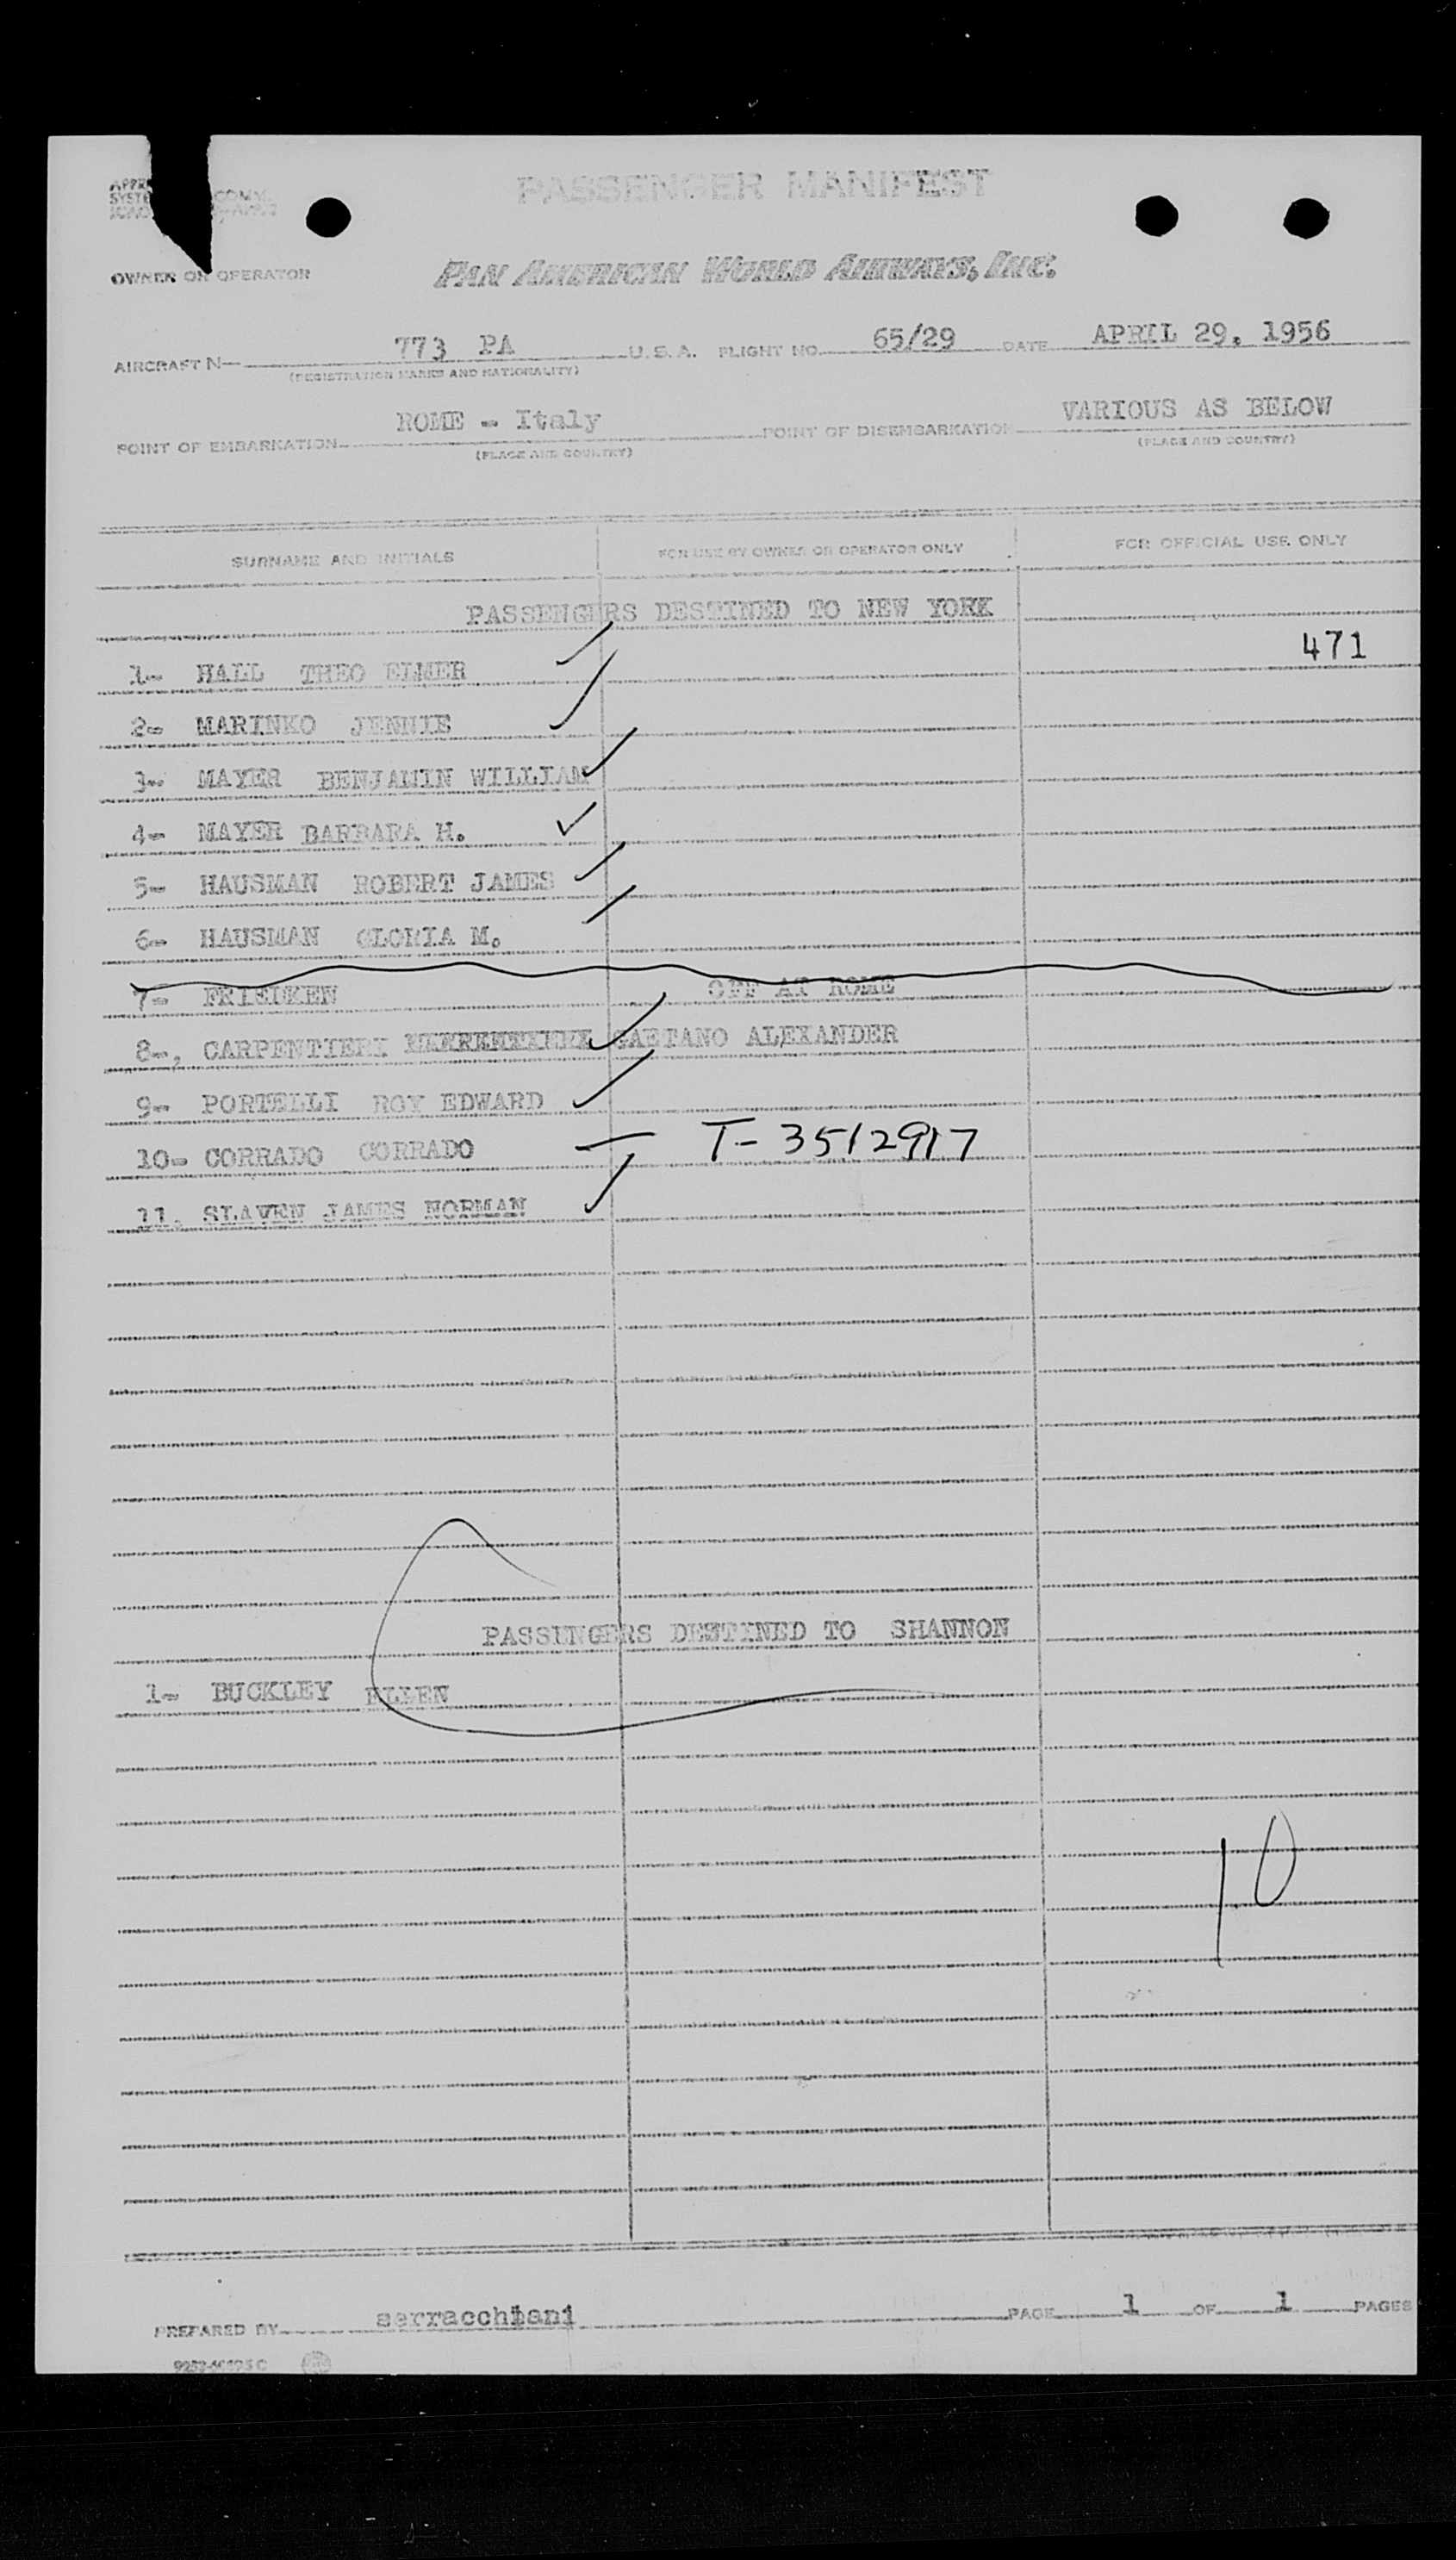 PASSENGER MANIFEST
OWNER OR OPERATOR PAN AMERICAN WORLD AIRWAYS, INC.
AIRCRAFT N 773 PA U.S.A. FLIGHT NO 65/29 DATE APRIL 29, 1956
(REGISTRATION MARKS AND NATIONALITY)
POINT OF EMBARKATION ROME - Italy POINT OF DISEMBARKATION VARIOUS AS BELOW
(PLACE AND COUNTRY) (PLACE AND COUNTRY)
SURNAME AND INITIALS FOR USE BY OWNER OR OPERATOR ONLY FOR OFFICIAL USE ONLY
PASSENGERS DESTINED TO NEW YORK
471
1- HALL THEO ELMER
2- MARINKO JENNIE
3- MAYER BENJAMIN WILLIAM
4- MAYER BARBARA H.
5- HAUSMAN ROBERT JAMES
6- HAUSMAN GLORIA M.
7- FRIEDKEN OFF AT ROME
8-. CARPENTIERI GAETANO ALEXANDER
9- PORTELLI ROY EDWARD
10- CORRADO CORRADO T-3512917
11. SLAVEN JAMES NORMAN
PASSENGERS DESTINED TO SHANNON
1- BUCKLEY ELLEN
10
PREPARED BY serracchiani PAGE 1 OF 1 PAGES